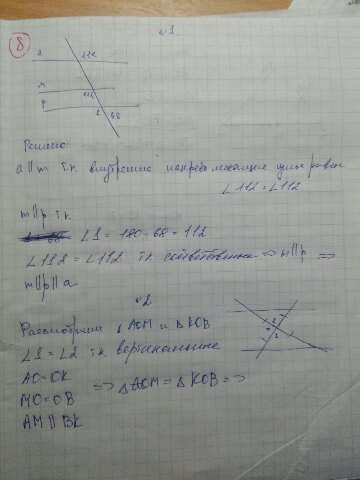 8
№1
a
112
m
112
p
1
68
Решение
a || m т.к. внутренние накрест лежащие углы равны
∠112 = ∠112
m || p т.к.
∠1 = 180 - 68 = 112
∠112 = ∠112 т.к. соответственные => m || p =>
m || p || a
№2
Рассмотрим △AOM и △KOB
∠1 = ∠2 т.к. вертикальные
AO = OK
MO = OB
=> △AOM = △KOB =>
AM || BK
2
1